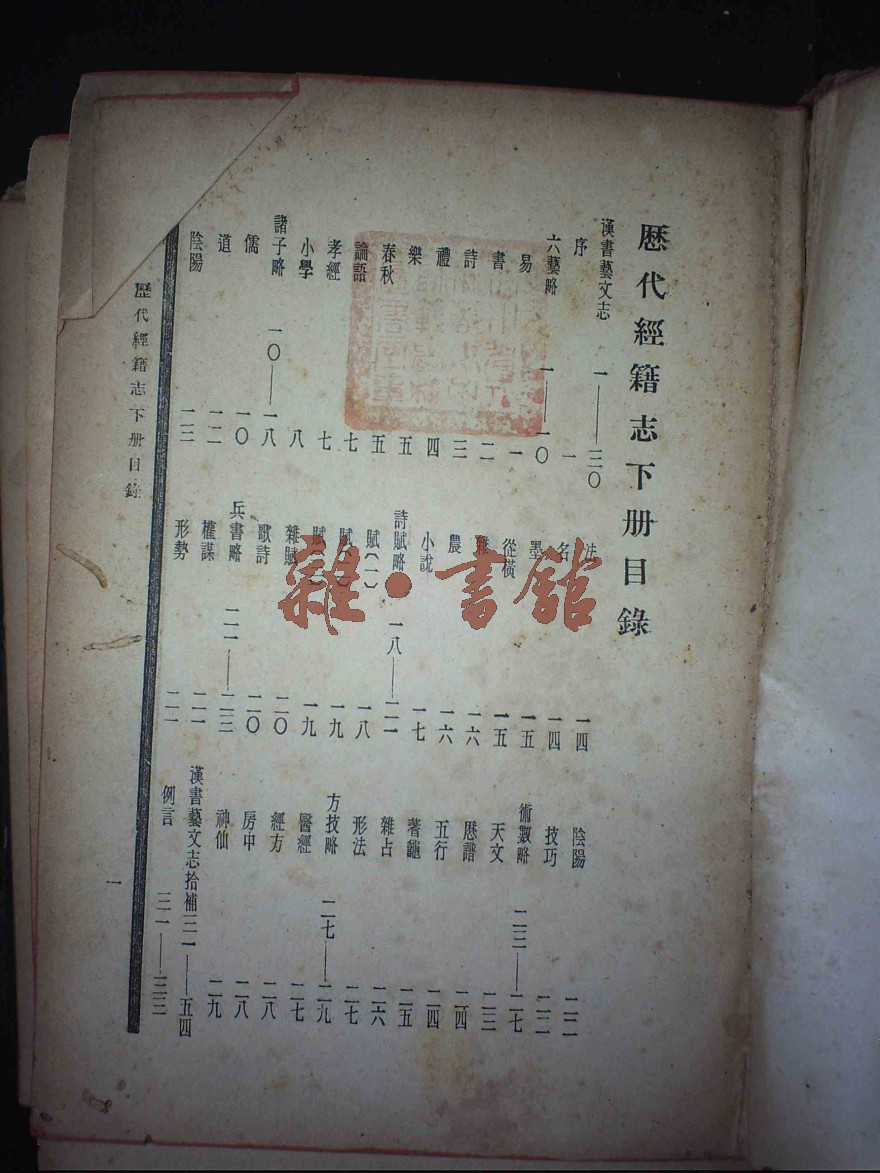 歷代經籍志下册目錄
漢書藝文志 一——三〇
序 一
六藝略 一——一〇
易 一
書 二
詩 三
禮 四
樂 五
春秋 五
論語 七
孝經 七
小學 八
諸子略 一〇——一八
儒 一〇
道 一二
陰陽 一三
法 一四
名 一四
墨 一五
從橫 一五
雜 一六
農 一六
小說 一七
詩賦略 一八——二一
賦(一) 一八
賦 一九
賦 一九
雜賦 二〇
歌詩 二〇
兵書略 二一——二三
權謀 二一
形勢 二二
陰陽 二二
技巧 二二
術數略 二三——二七
天文 二三
曆譜 二四
五行 二四
蓍龜 二五
雜占 二六
形法 二七
方技略 二七——二九
醫經 二七
經方 二八
房中 二八
神仙 二九
漢書藝文志拾補 三一——五四
例言 三一——三三
歷代經籍志下册目錄
一
雜·書館